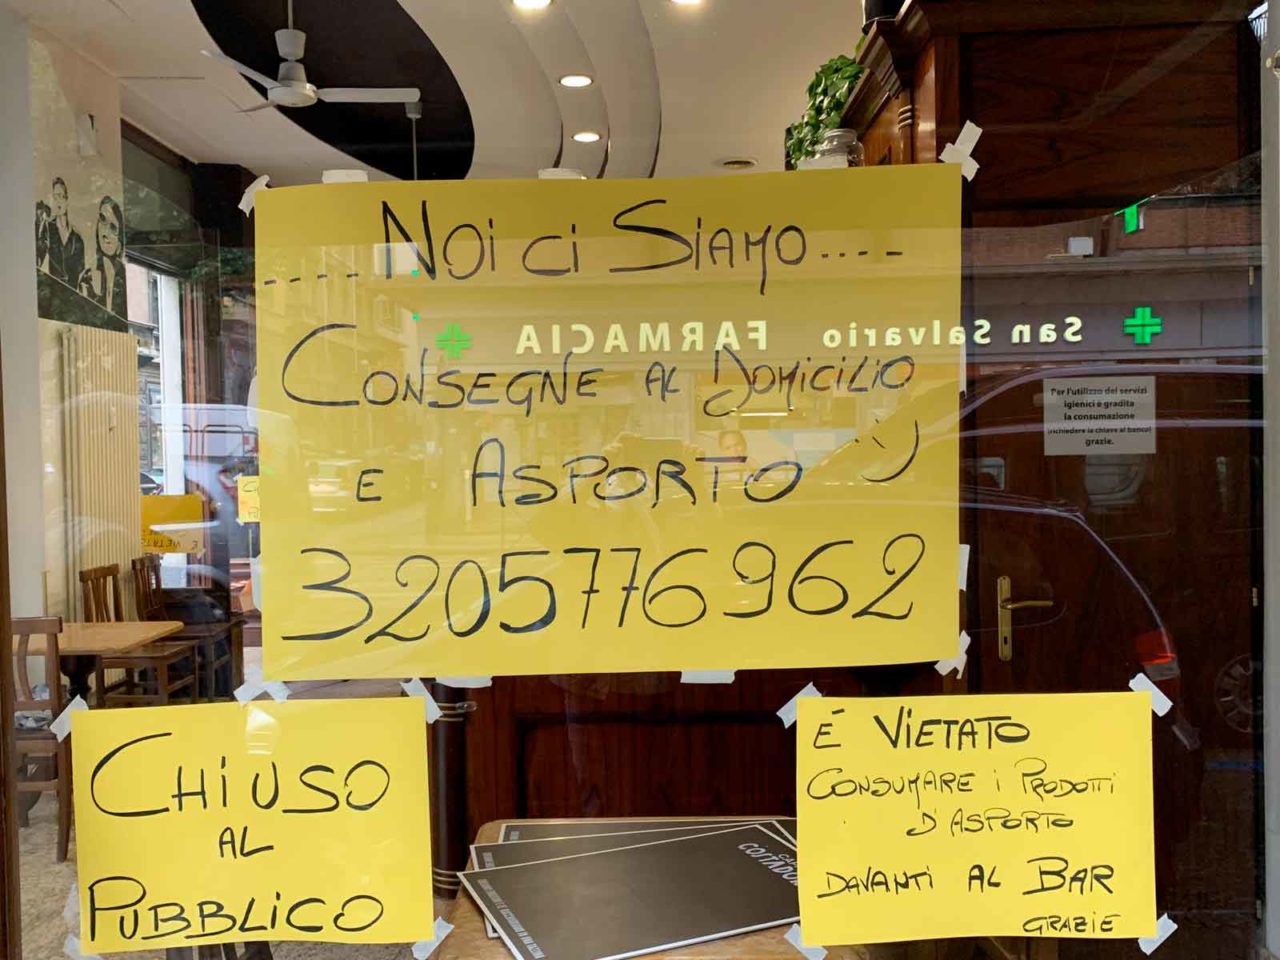 ....Noi ci Siamo....
Consegne al Domicilio
e Asporto :)
3205776962
San Salvario FARMACIA
Per l'utilizzo dei servizi
igienici è gradita
la consumazione
(richiedere la chiave al banco)
grazie.
Chiuso
al
Pubblico
É Vietato
Consumare i Prodotti
d'Asporto
davanti al Bar
grazie